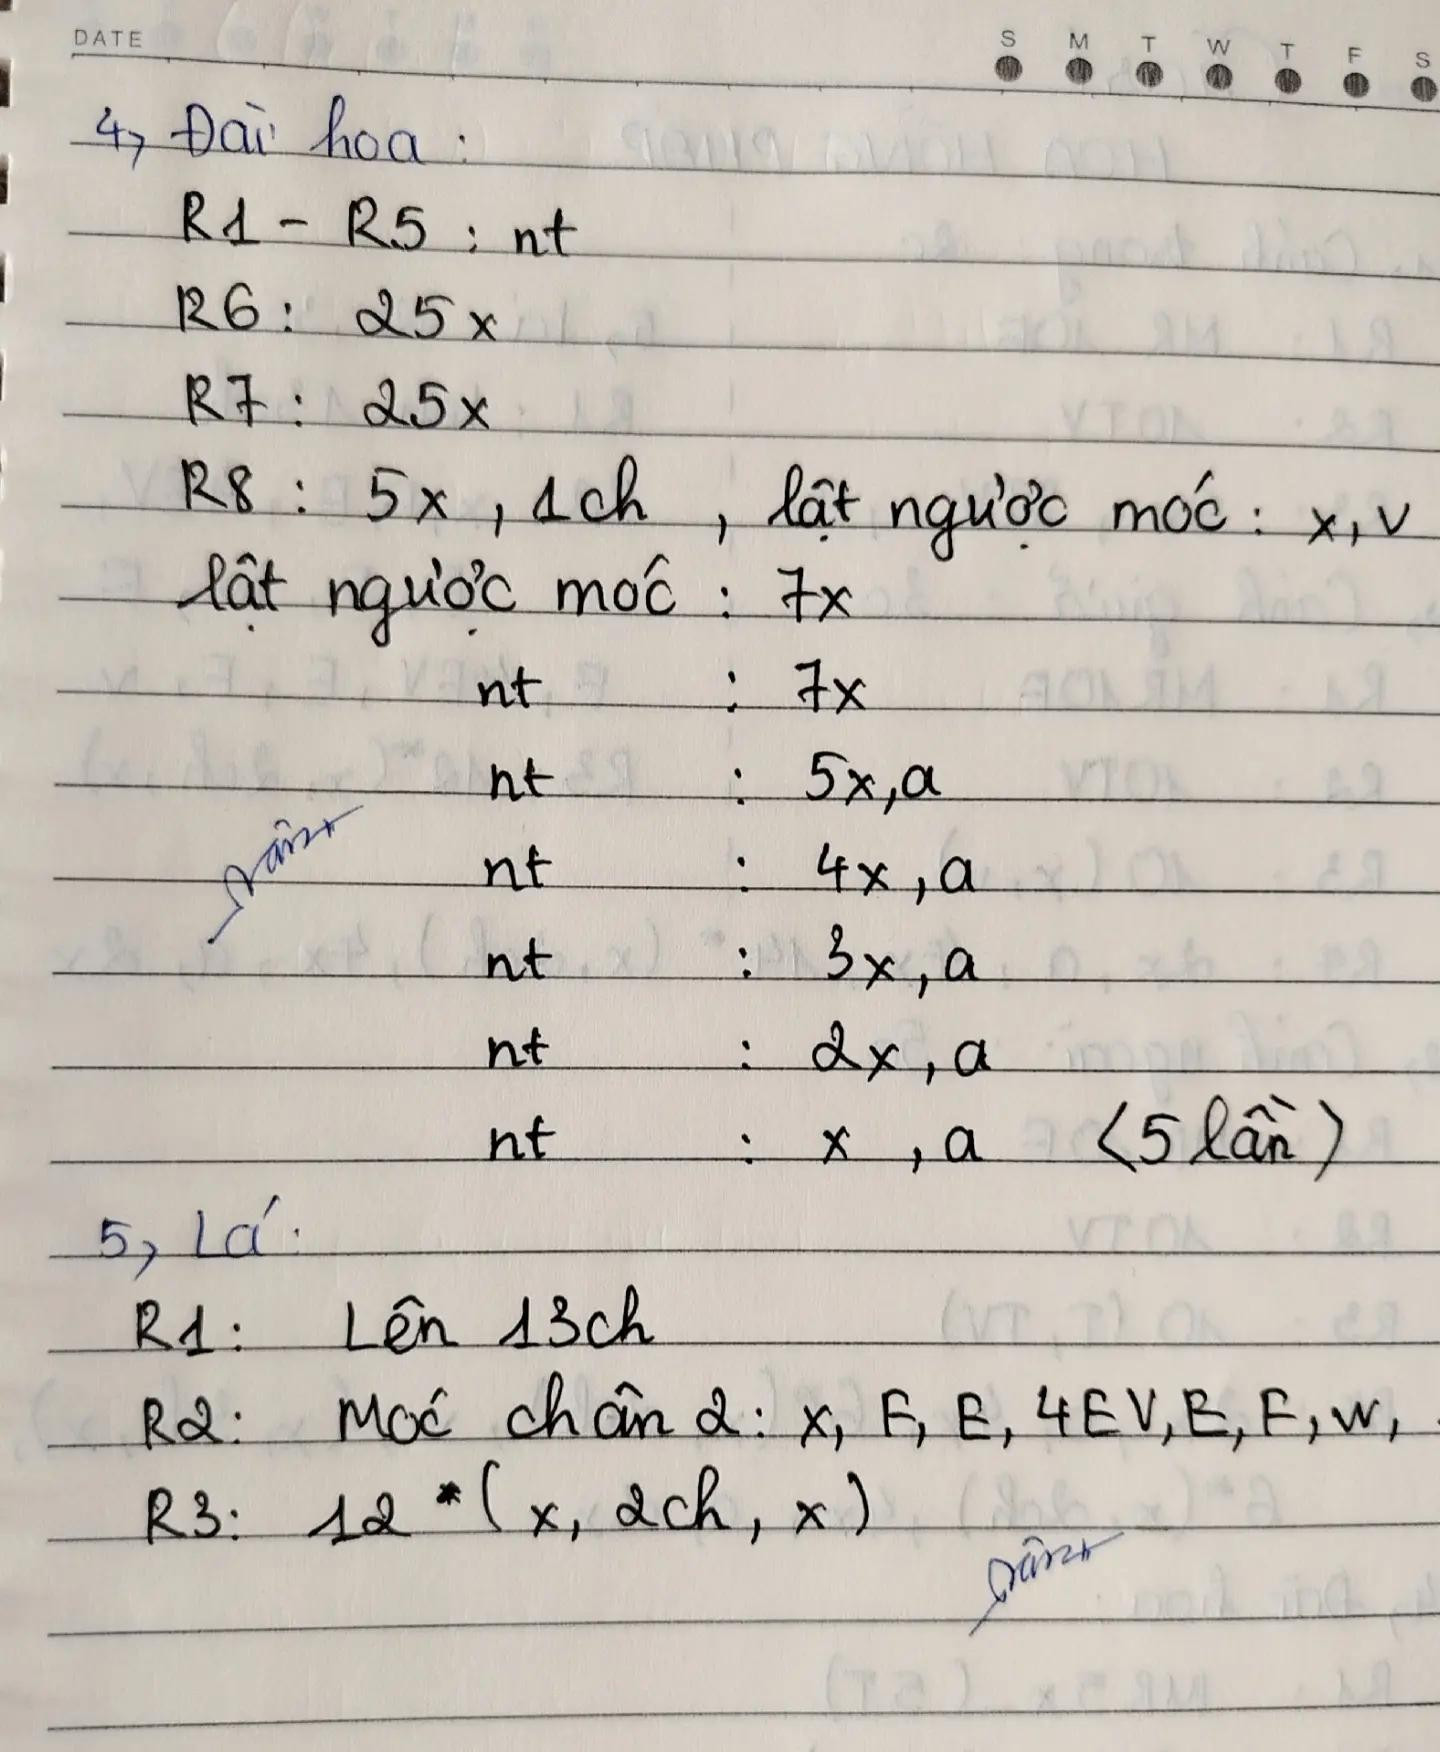 DATE
S M T W T F S
4, Đài hoa :
R1 - R5 : nt
R6 : 25x
R7 : 25x
R8 : 5x, 1ch, lật ngược móc : x, v
lật ngược móc : 7x
nt : 7x
nt : 5x, a
nt : 4x, a
nt : 3x, a
nt : 2x, a
nt : x, a (5 lần)
5, Lá :
R1 : Lên 13ch
R2 : Móc chân 2 : x, F, E, 4EV, E, F, w,
R3 : 12 * (x, 2ch, x)